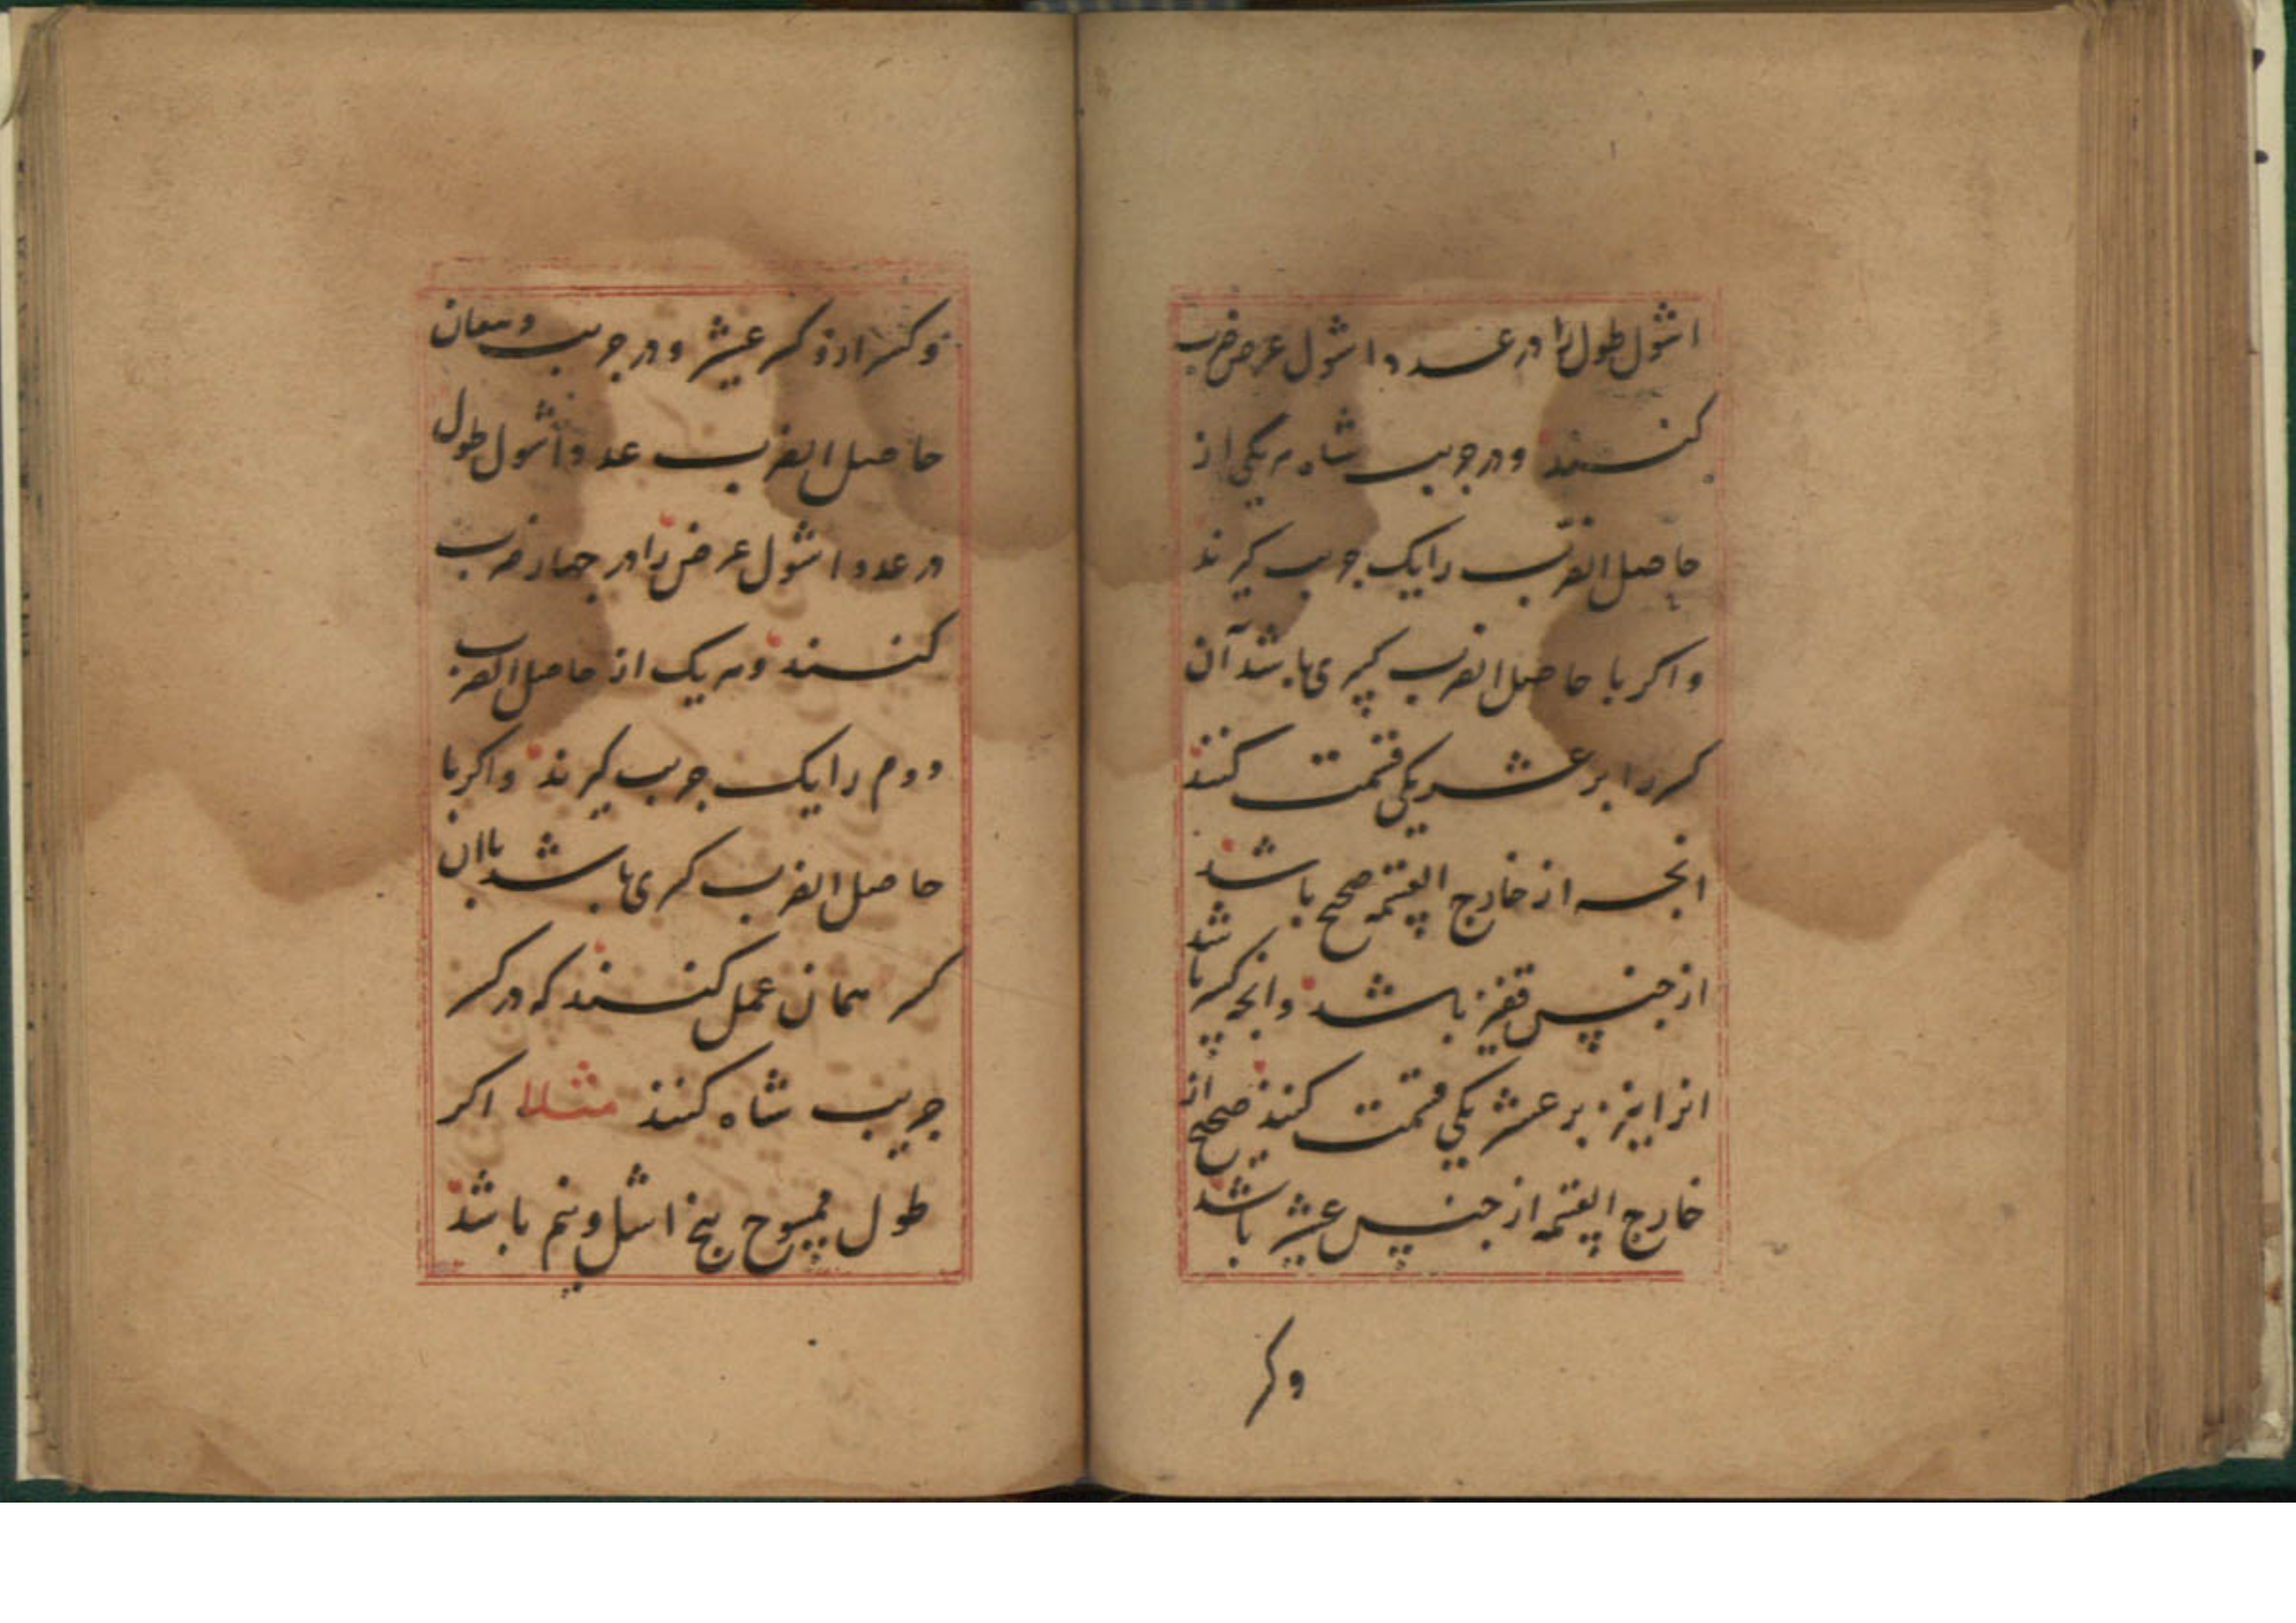 اشول طول را در عدد اشول عرض ضرب
کنند و در جریب شاه هر یکی از
حاصل الضرب را یک جریب کیرند
واکر با حاصل الضرب کسری باشد آن
کسر را بر عشر یکی قسمت کنند
انچه از خارج القسمة صحیح باشد
از جنس قفیز باشد وانچه کسر باشد
انرا نیز بر عشر یکی قسمت کنند صحیح از
خارج القسمة از جنس عشیر باشد
وکسر
وکسر از کسر عشیر و در جریب دهقان
حاصل الضرب عدد اشول طول
در عدد اشول عرض را در چهار ضرب
کنند و هر یک از حاصل الضرب
دوم را یک جریب کیرند واکر با
حاصل الضرب کسری باشد باان
کسر همان عمل کنند که در کسر
جریب شاه کنند مثلا اکر
طول ممسوح پنج اشل و نیم باشد